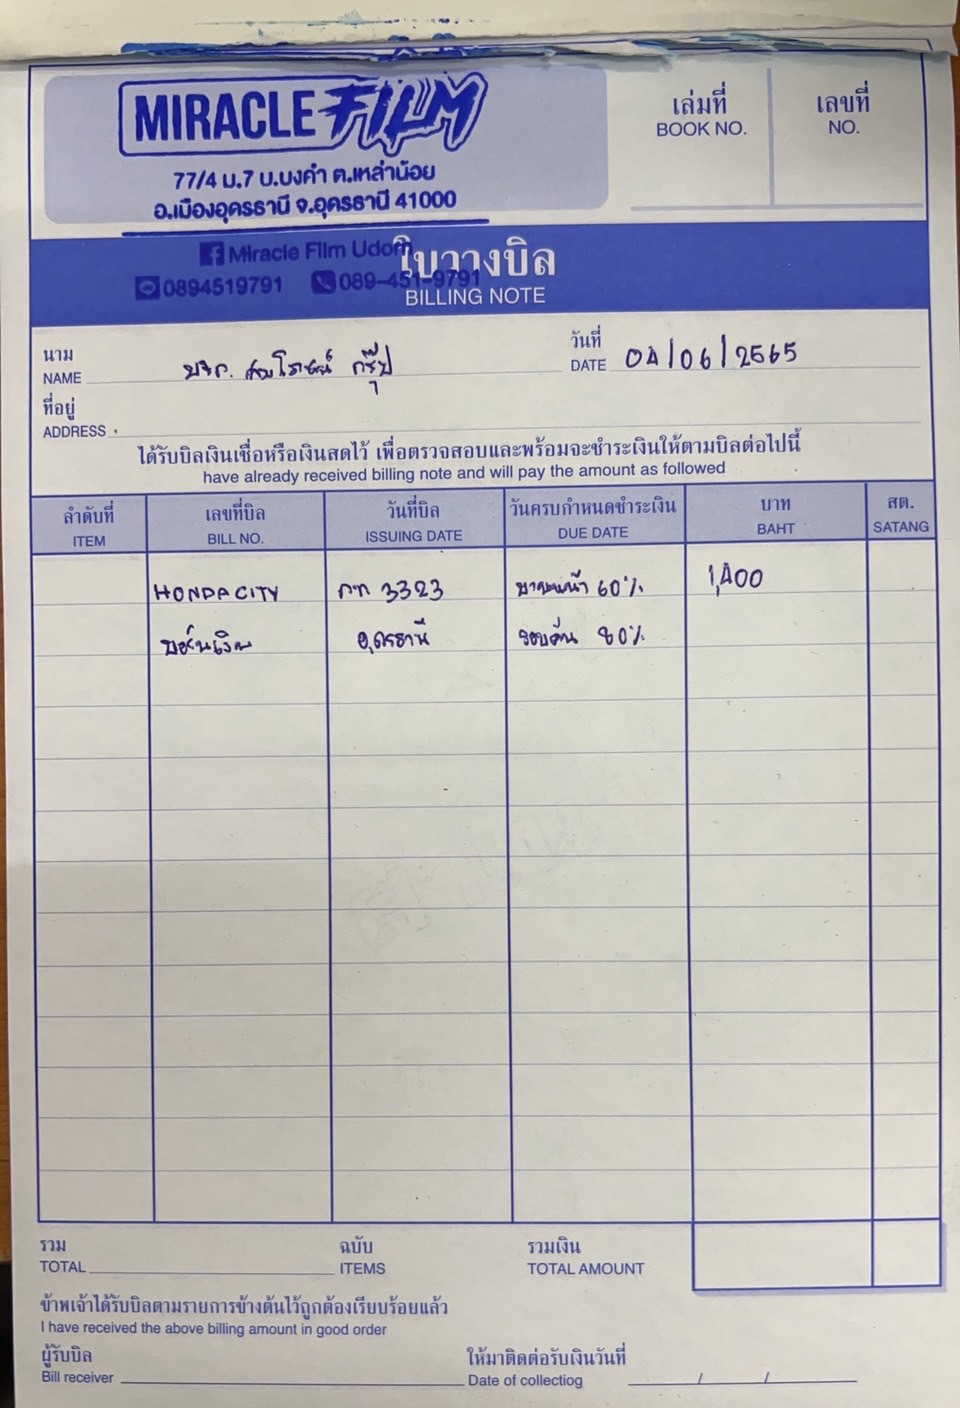 MIRACLE FILM
77/4 ม.7 บ.บงคำ ต.เหล่าน้อย
อ.เมืองอุดรธานี จ.อุดรธานี 41000
เล่มที่
BOOK NO.
เลขที่
NO.
Miracle Film Udorn
0894519791 089-451-9791
ใบวางบิล
BILLING NOTE
นาม
NAME บจก. กรุ๊ป
วันที่
DATE 04/06/2565
ที่อยู่
ADDRESS
ได้รับบิลเงินเชื่อหรือเงินสดไว้ เพื่อตรวจสอบและพร้อมจะชำระเงินให้ตามบิลต่อไปนี้
have already received billing note and will pay the amount as followed
ลำดับที่ เลขที่บิล วันที่บิล วันครบกำหนดชำระเงิน บาท สต.
ITEM BILL NO. ISSUING DATE DUE DATE BAHT SATANG
HONDA CITY กท 3323 บานหน้า 60% 1,400
บอร์นเงิน อุดรธานี รอบคัน 80%
รวม
TOTAL
ฉบับ
ITEMS
รวมเงิน
TOTAL AMOUNT
ข้าพเจ้าได้รับบิลตามรายการข้างต้นไว้ถูกต้องเรียบร้อยแล้ว
I have received the above billing amount in good order
ผู้รับบิล
Bill receiver
ให้มาติดต่อรับเงินวันที่
Date of collectiog / /